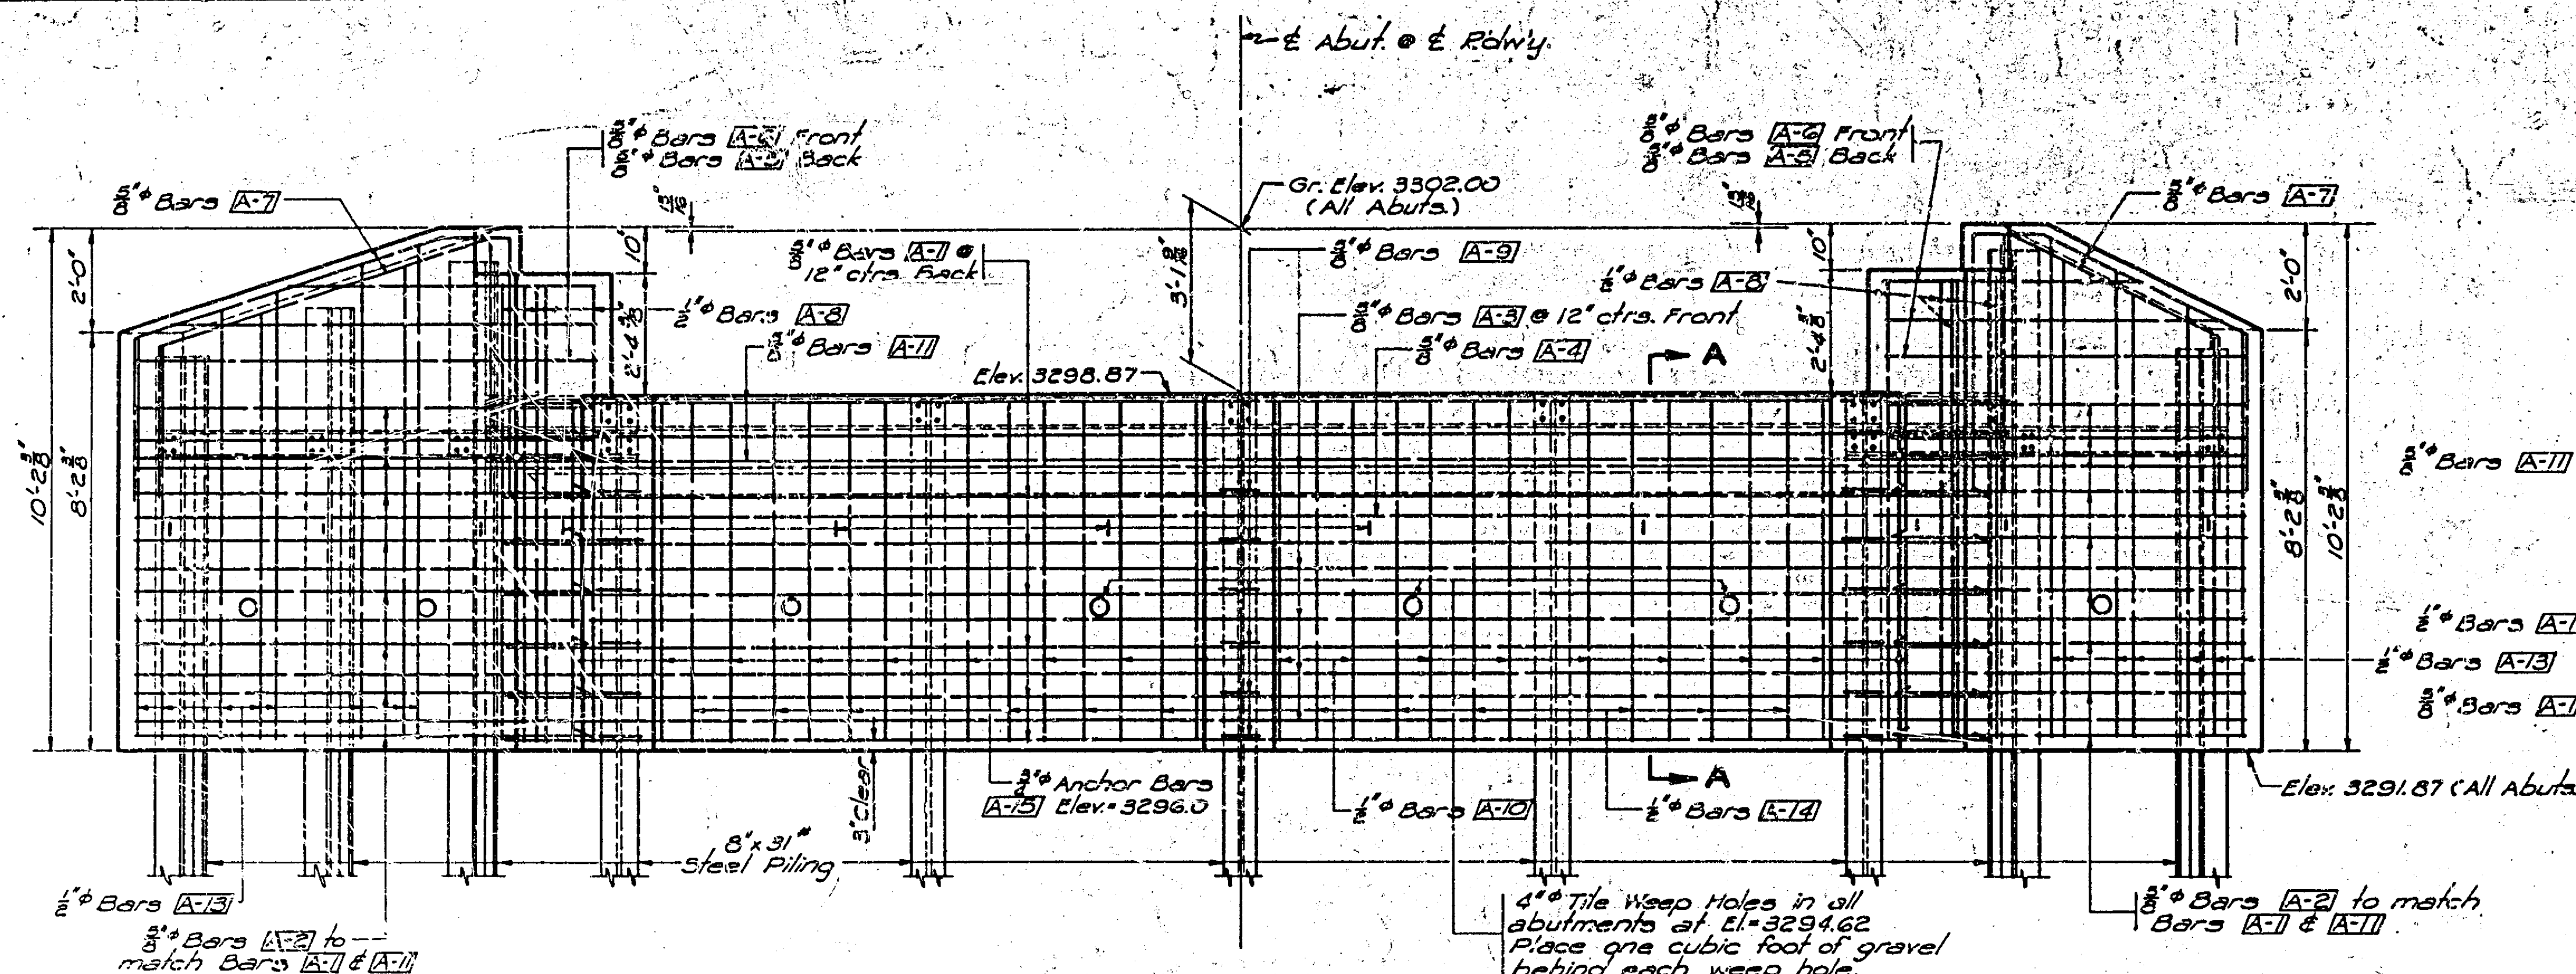 ℄ Abut. @ ℄ Rdw'y.
5/8"ϕ Bars A-6 Front
5/8"ϕ Bars A-5 Back
5/8"ϕ Bars A-6 Front
5/8"ϕ Bars A-5 Back
5/8"ϕ Bars A-7
Gr. Elev. 3302.00
(All Abuts.)
5/8"ϕ Bars A-7
2'-0"
10"
5/8"ϕ Bars A-1 @
12" ctrs. Back
3'-1 9/16"
5/8"ϕ Bars A-9
10"
2'-0"
1/2"ϕ Bars A-8
1/2"ϕ Bars A-8
5/8"ϕ Bars A-3 @ 12" ctrs. Front
5/8"ϕ Bars A-11
5/8"ϕ Bars A-4
A
2'-4 3/8"
2'-4 3/8"
Elev. 3298.87
10'-2 3/8"
8'-2 3/8"
8'-2 3/8"
10'-2 3/8"
5/8"ϕ Bars A-11
1/2"ϕ Bars
1/2"ϕ Bars A-13
5/8"ϕ Bars
3" Clear
Anchor Bars
A-15 Elev.=3296.0
A
1/2"ϕ Bars A-10
1/2"ϕ Bars A-14
Elev. 3291.87 (All Abuts.
8"x31#
Steel Piling
1/2"ϕ Bars A-13
5/8"ϕ Bars A-2 to
match Bars A-1 & A-11
4"ϕ Tile Weep Holes in all
abutments at El.=3294.62
Place one cubic foot of gravel
behind each weep hole.
5/8"ϕ Bars A-2 to match
Bars A-1 & A-11